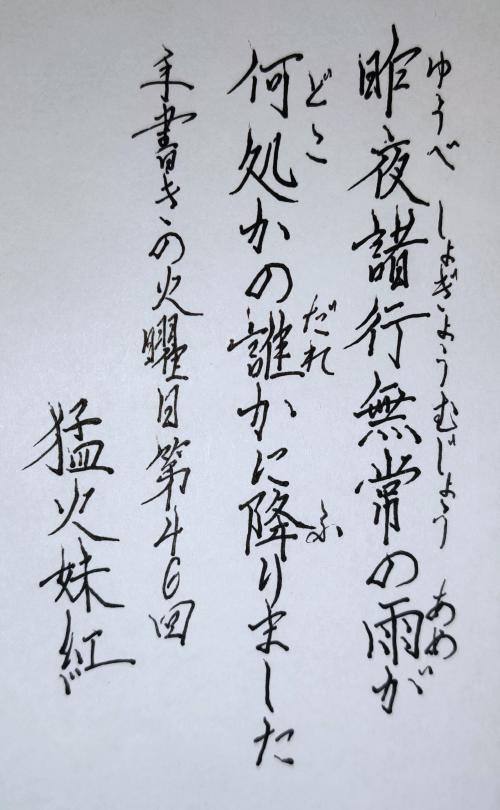 昨夜諸行無常の雨が
ゆうべ しょぎょうむじょう あめ
何処かの誰かに降りました
どこ だれ ふ
手書きの火曜日第46回
猛火妹紅